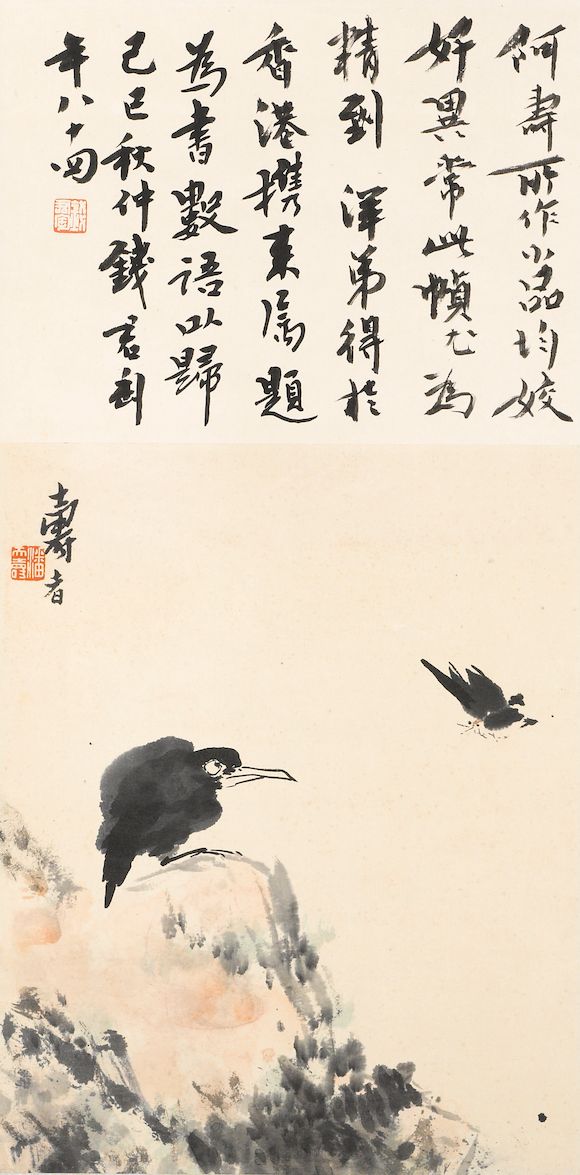 阿壽所作小品均姣
妍異常此幀尤為
精到 渾弟得於
香港携來屬題
為書數語以歸
己巳秋仲錢君匋
年八十四
壽者
潘天壽